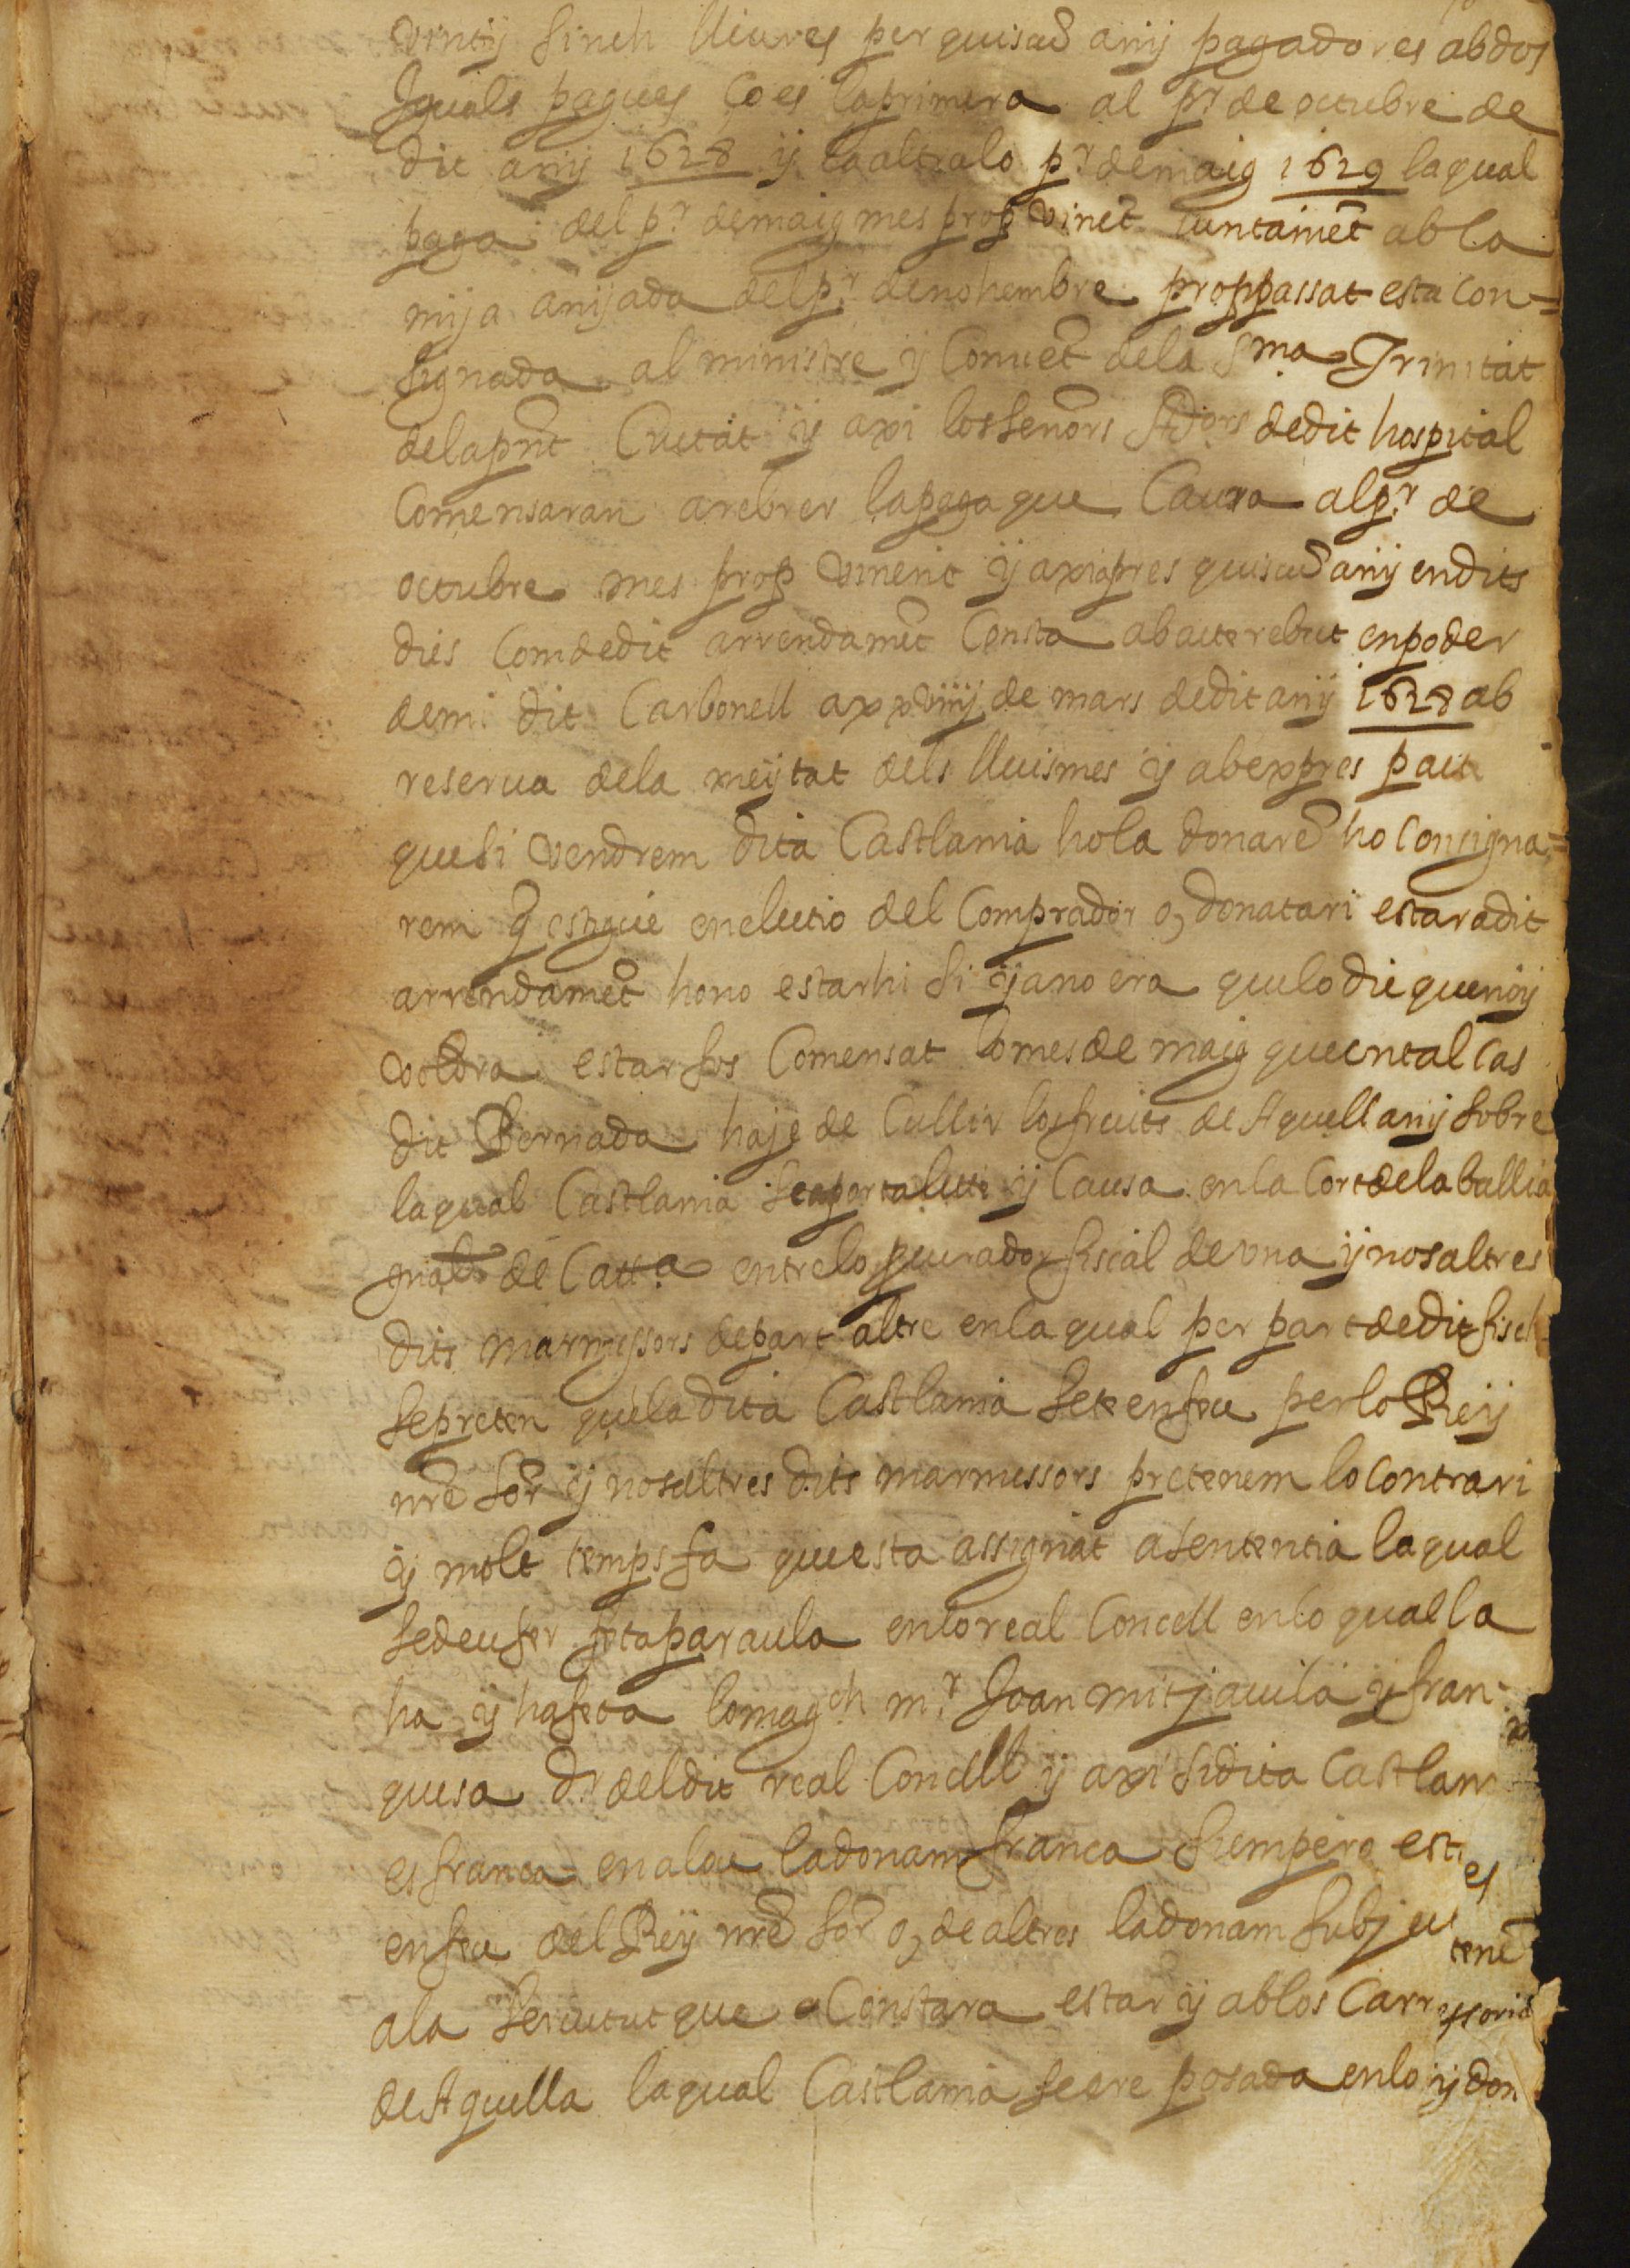 vintij sinch lliures per quiscũ anij pagadores abdos
Iguals pagues ço es la primera al pr de octubre de
dit anij 1628 ij la altra lo pr de maig 1629 la qual
paga del pr de maig mes prop vinẽt iuntamẽt ab la
mija anijada del pr de nohembre prop passat esta con=
signada al ministre ij Conuẽt de la Sma Trinitat
de la pñt Ciutat ij axi los señors Adors de dit hospital
Comensaran a rebrer la paga que Caura al pr de
octubre mes prop vinent ij axi apres quiscũ anij en dits
dies Com de dit arrendamẽt Consta ab acte rebut en poder
de mi dit Carbonell a xxviiij de mars de dit anij 1628 ab
reserua de la meijtat dels lluismes ij ab expres pacte
que si vendrem dita Castlania ho la donarẽ ho Consigna=
rem q estigue en electio del Comprador o, donatari estar a dit
arrendamẽt ho no estarhi si ija no era que lo die que noij
voldra estar fos Comensat lo mes de maig que en tal Cas
dit Bernada haje de Cullir los fruits de Aquell anij sobre
la qual Castlania se aporta lite ij Causa en la Cort de la ballia
gnal de Catta entre lo pcurador fiscal de vna ij nosaltres
dits marmessors de part altre en la qual per part de dit fisch
se preten que la dita Castlania se te en feu per lo Reij
nrẽ Sor ij nosaltres dits marmessors pretenem lo contrari
ij molt temps fa que esta assignat a sententia la qual
se deu fer feta paraula en lo real Concell en lo qual la
ha ij ha feta lo magch mr Joan mitjauila ij fran-
quesa dr del dit real Concell ij axi si dita Castlani
es franca en alou la donam franca si empero esti
en feu del Reij nrẽ Sor o, de altres la donam subjec
a la seruitut que Constara estar ij ab los Carr
de Aquella la qual Castlania sere posada en lo
es
tenẽ
ij don